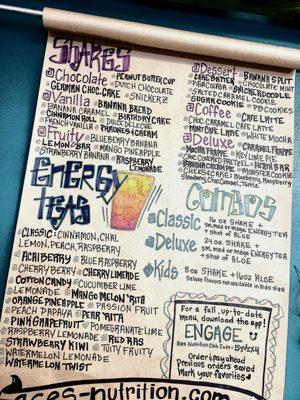 SHAKES
@Chocolate • PEANUT BUTTER CUP
• DUTCH CHOCOLATE
GERMAN CHOC. CAKE • SNICKERZ
@Vanilla • BANANA BREAD
BANANA CARAMEL • BIRTHDAY CAKE
CINNAMON ROLL • DULCE DE LECHE
FRENCH VANILLA • PRALINES & CREAM
@Fruity • BLUEBERRY BANANA
LEMON BAR • MANGO PINEAPPLE
STRAWBERRY BANANA • RASPBERRY LEMONADE
@Dessert • BANANA SPLIT
CAKE BATTER • CHOCOLATE MINT
• SNICKERDOODLE
SALTED CARAMEL COOKIE
SUGAR COOKIE • PB COOKIES
@Coffee • CAFE LATTE
CHOC. CARAMEL CAFE LATTE
MINT CAFE LATTE • WHITE MOCHA
@Deluxe • CARAMEL FRAPPE
• KEY LIME PIE
CHOC COVERED PRETZEL
ENERGY TEAS
@CLASSIC: CINNAMON, CHAI,
LEMON, PEACH, RASPBERRY
@ACAI BERRY @ BLUE RASPBERRY
@CHERRY BERRY @ CHERRY LIMEADE
@COTTON CANDY @ CUCUMBER LIME
@LEMONADE @ MANGO MELON 'RITA
@ORANGE PINEAPPLE @ PASSION FRUIT
@PEACH PAPAYA @ PEAR 'RITA
@PINK GRAPEFRUIT @ POMEGRANATE LIME
@RASPBERRY LEMONADE @ RED RAS
@STRAWBERRY KIWI @ TUITY FRUITY
@WATERMELON LEMONADE
@WATERMELON TWIST
Combos
@Classic 16 oz SHAKE +
sm, med or mega ENERGY TEA
+ ALOE
@Deluxe 24 oz SHAKE +
sm, med or mega ENERGY TEA
+ ALOE
@Kids 8 oz SHAKE + 16oz ALOE
Deluxe flavors not available in kids size
For a full, up-to-date
menu, download the app!
ENGAGE
Aces Nutrition Club Code:
Order/pay ahead
Previous orders saved
Mark your favorites
aces-nutrition.com